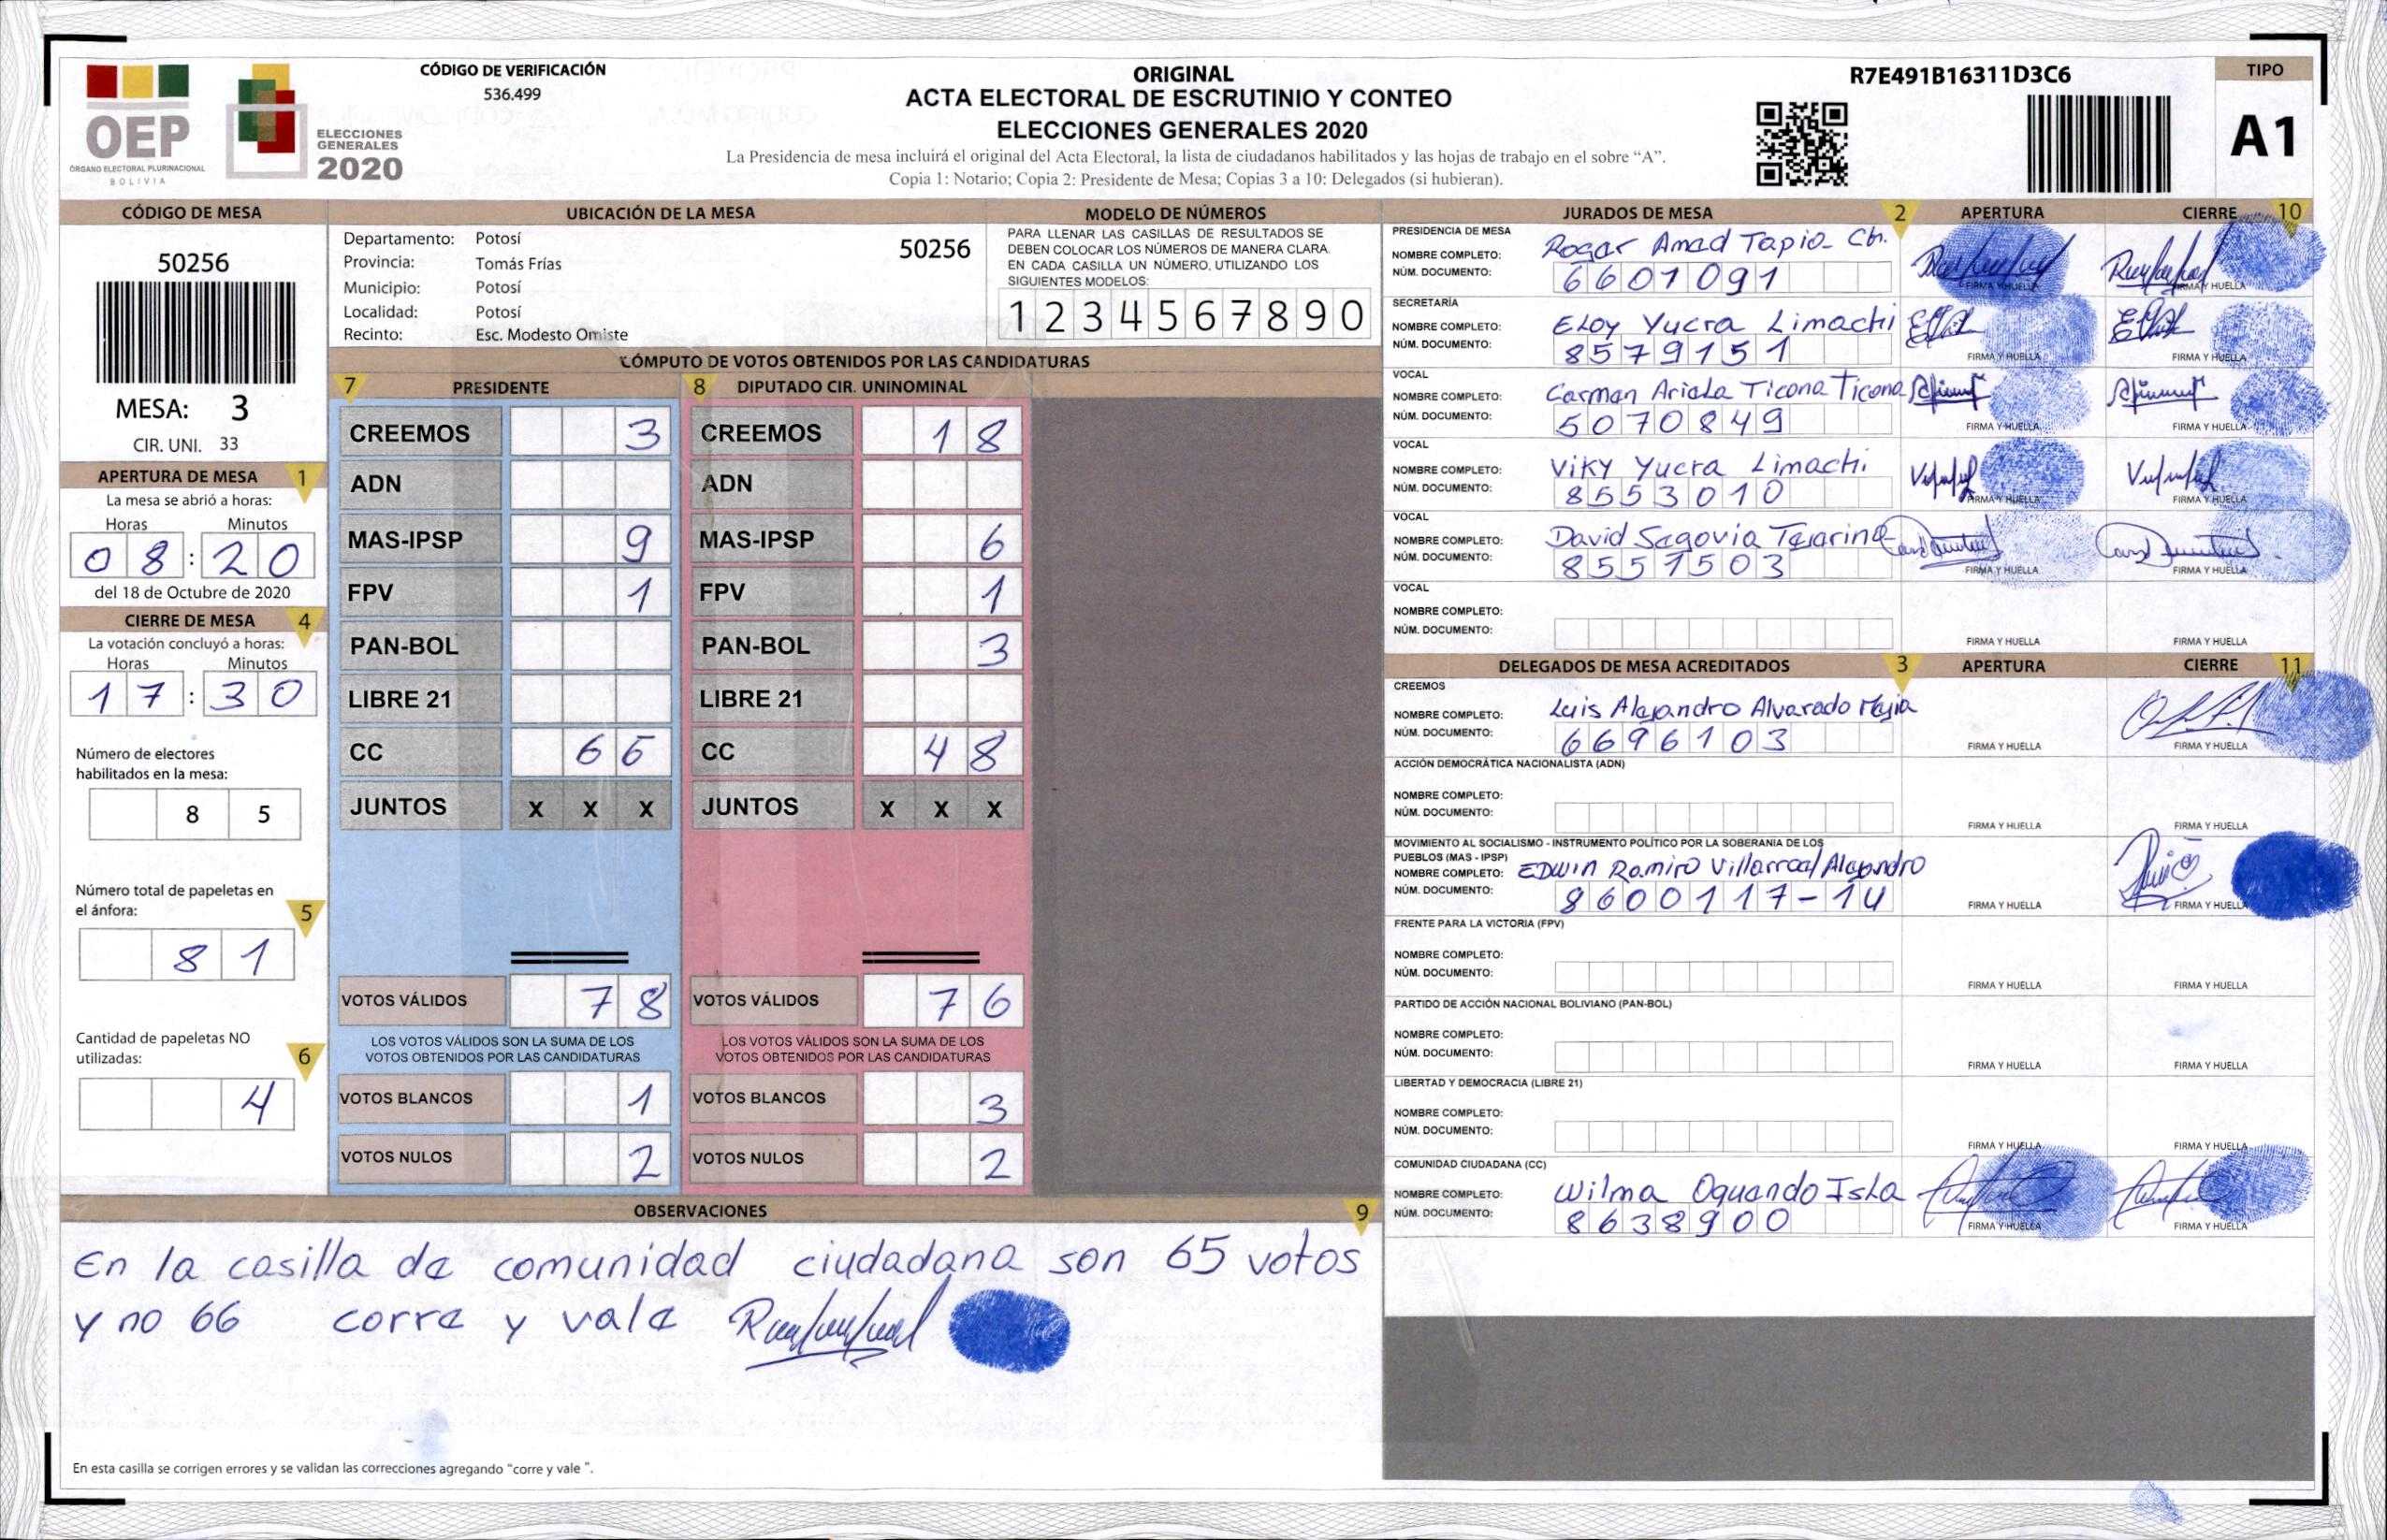 OEP
ÓRGANO ELECTORAL PLURINACIONAL
BOLIVIA
ELECCIONES
GENERALES
2020
CÓDIGO DE VERIFICACIÓN
536.499
ORIGINAL
ACTA ELECTORAL DE ESCRUTINIO Y CONTEO
ELECCIONES GENERALES 2020
La Presidencia de mesa incluirá el original del Acta Electoral, la lista de ciudadanos habilitados y las hojas de trabajo en el sobre “A”.
Copia 1: Notario; Copia 2: Presidente de Mesa; Copias 3 a 10: Delegados (si hubieran).
R7E491B16311D3C6
TIPO
A1
CÓDIGO DE MESA
50256
MESA: 3
CIR. UNI. 33
APERTURA DE MESA 1
La mesa se abrió a horas:
Horas Minutos
08:20
del 18 de Octubre de 2020
CIERRE DE MESA 4
La votación concluyó a horas:
Horas Minutos
17:30
Número de electores
habilitados en la mesa:
8 5
Número total de papeletas en
el ánfora: 5
8 1
Cantidad de papeletas NO
utilizadas: 6
4
UBICACIÓN DE LA MESA
Departamento: Potosí 50256
Provincia: Tomás Frías
Municipio: Potosí
Localidad: Potosí
Recinto: Esc. Modesto Omiste
MODELO DE NÚMEROS
PARA LLENAR LAS CASILLAS DE RESULTADOS SE
DEBEN COLOCAR LOS NÚMEROS DE MANERA CLARA.
EN CADA CASILLA UN NÚMERO, UTILIZANDO LOS
SIGUIENTES MODELOS:
1 2 3 4 5 6 7 8 9 0
CÓMPUTO DE VOTOS OBTENIDOS POR LAS CANDIDATURAS
7 PRESIDENTE
CREEMOS 3
ADN
MAS-IPSP 9
FPV 1
PAN-BOL
LIBRE 21
CC 6 6
JUNTOS X X X
VOTOS VÁLIDOS 7 8
LOS VOTOS VÁLIDOS SON LA SUMA DE LOS
VOTOS OBTENIDOS POR LAS CANDIDATURAS
VOTOS BLANCOS 1
VOTOS NULOS 2
8 DIPUTADO CIR. UNINOMINAL
CREEMOS 1 8
ADN
MAS-IPSP 6
FPV 1
PAN-BOL 3
LIBRE 21
CC 4 8
JUNTOS X X X
VOTOS VÁLIDOS 7 6
LOS VOTOS VÁLIDOS SON LA SUMA DE LOS
VOTOS OBTENIDOS POR LAS CANDIDATURAS
VOTOS BLANCOS 3
VOTOS NULOS 2
OBSERVACIONES 9
En la casilla de comunidad ciudadana son 65 votos
y no 66 corre y vale
En esta casilla se corrigen errores y se validan las correcciones agregando “corre y vale ”.
JURADOS DE MESA 2 APERTURA CIERRE 10
PRESIDENCIA DE MESA
NOMBRE COMPLETO: Rogar Amad Tapia Ch.
NÚM. DOCUMENTO: 6601091
FIRMA Y HUELLA FIRMA Y HUELLA
SECRETARÍA
NOMBRE COMPLETO: Eloy Yucra Limachi
NÚM. DOCUMENTO: 8579151
FIRMA Y HUELLA FIRMA Y HUELLA
VOCAL
NOMBRE COMPLETO: Carman Ariela Ticona Ticona
NÚM. DOCUMENTO: 5070849
FIRMA Y HUELLA FIRMA Y HUELLA
VOCAL
NOMBRE COMPLETO: Viky Yucra Limachi
NÚM. DOCUMENTO: 8553010
FIRMA Y HUELLA FIRMA Y HUELLA
VOCAL
NOMBRE COMPLETO: David Segovia
NÚM. DOCUMENTO: 8551503
FIRMA Y HUELLA FIRMA Y HUELLA
VOCAL
NOMBRE COMPLETO:
NÚM. DOCUMENTO:
FIRMA Y HUELLA FIRMA Y HUELLA
DELEGADOS DE MESA ACREDITADOS 3 APERTURA CIERRE 11
CREEMOS
NOMBRE COMPLETO: Luis Alejandro Alvarado Mejia
NÚM. DOCUMENTO: 6696103
FIRMA Y HUELLA FIRMA Y HUELLA
ACCIÓN DEMOCRÁTICA NACIONALISTA (ADN)
NOMBRE COMPLETO:
NÚM. DOCUMENTO:
FIRMA Y HUELLA FIRMA Y HUELLA
MOVIMIENTO AL SOCIALISMO - INSTRUMENTO POLÍTICO POR LA SOBERANIA DE LOS
PUEBLOS (MAS - IPSP)
NOMBRE COMPLETO: EDWIN Ramiro Villarroel Alejandro
NÚM. DOCUMENTO: 8600117-1U
FIRMA Y HUELLA FIRMA Y HUELLA
FRENTE PARA LA VICTORIA (FPV)
NOMBRE COMPLETO:
NÚM. DOCUMENTO:
FIRMA Y HUELLA FIRMA Y HUELLA
PARTIDO DE ACCIÓN NACIONAL BOLIVIANO (PAN-BOL)
NOMBRE COMPLETO:
NÚM. DOCUMENTO:
FIRMA Y HUELLA FIRMA Y HUELLA
LIBERTAD Y DEMOCRACIA (LIBRE 21)
NOMBRE COMPLETO:
NÚM. DOCUMENTO:
FIRMA Y HUELLA FIRMA Y HUELLA
COMUNIDAD CIUDADANA (CC)
NOMBRE COMPLETO: Wilma Oquendo Isla
NÚM. DOCUMENTO: 8638900
FIRMA Y HUELLA FIRMA Y HUELLA